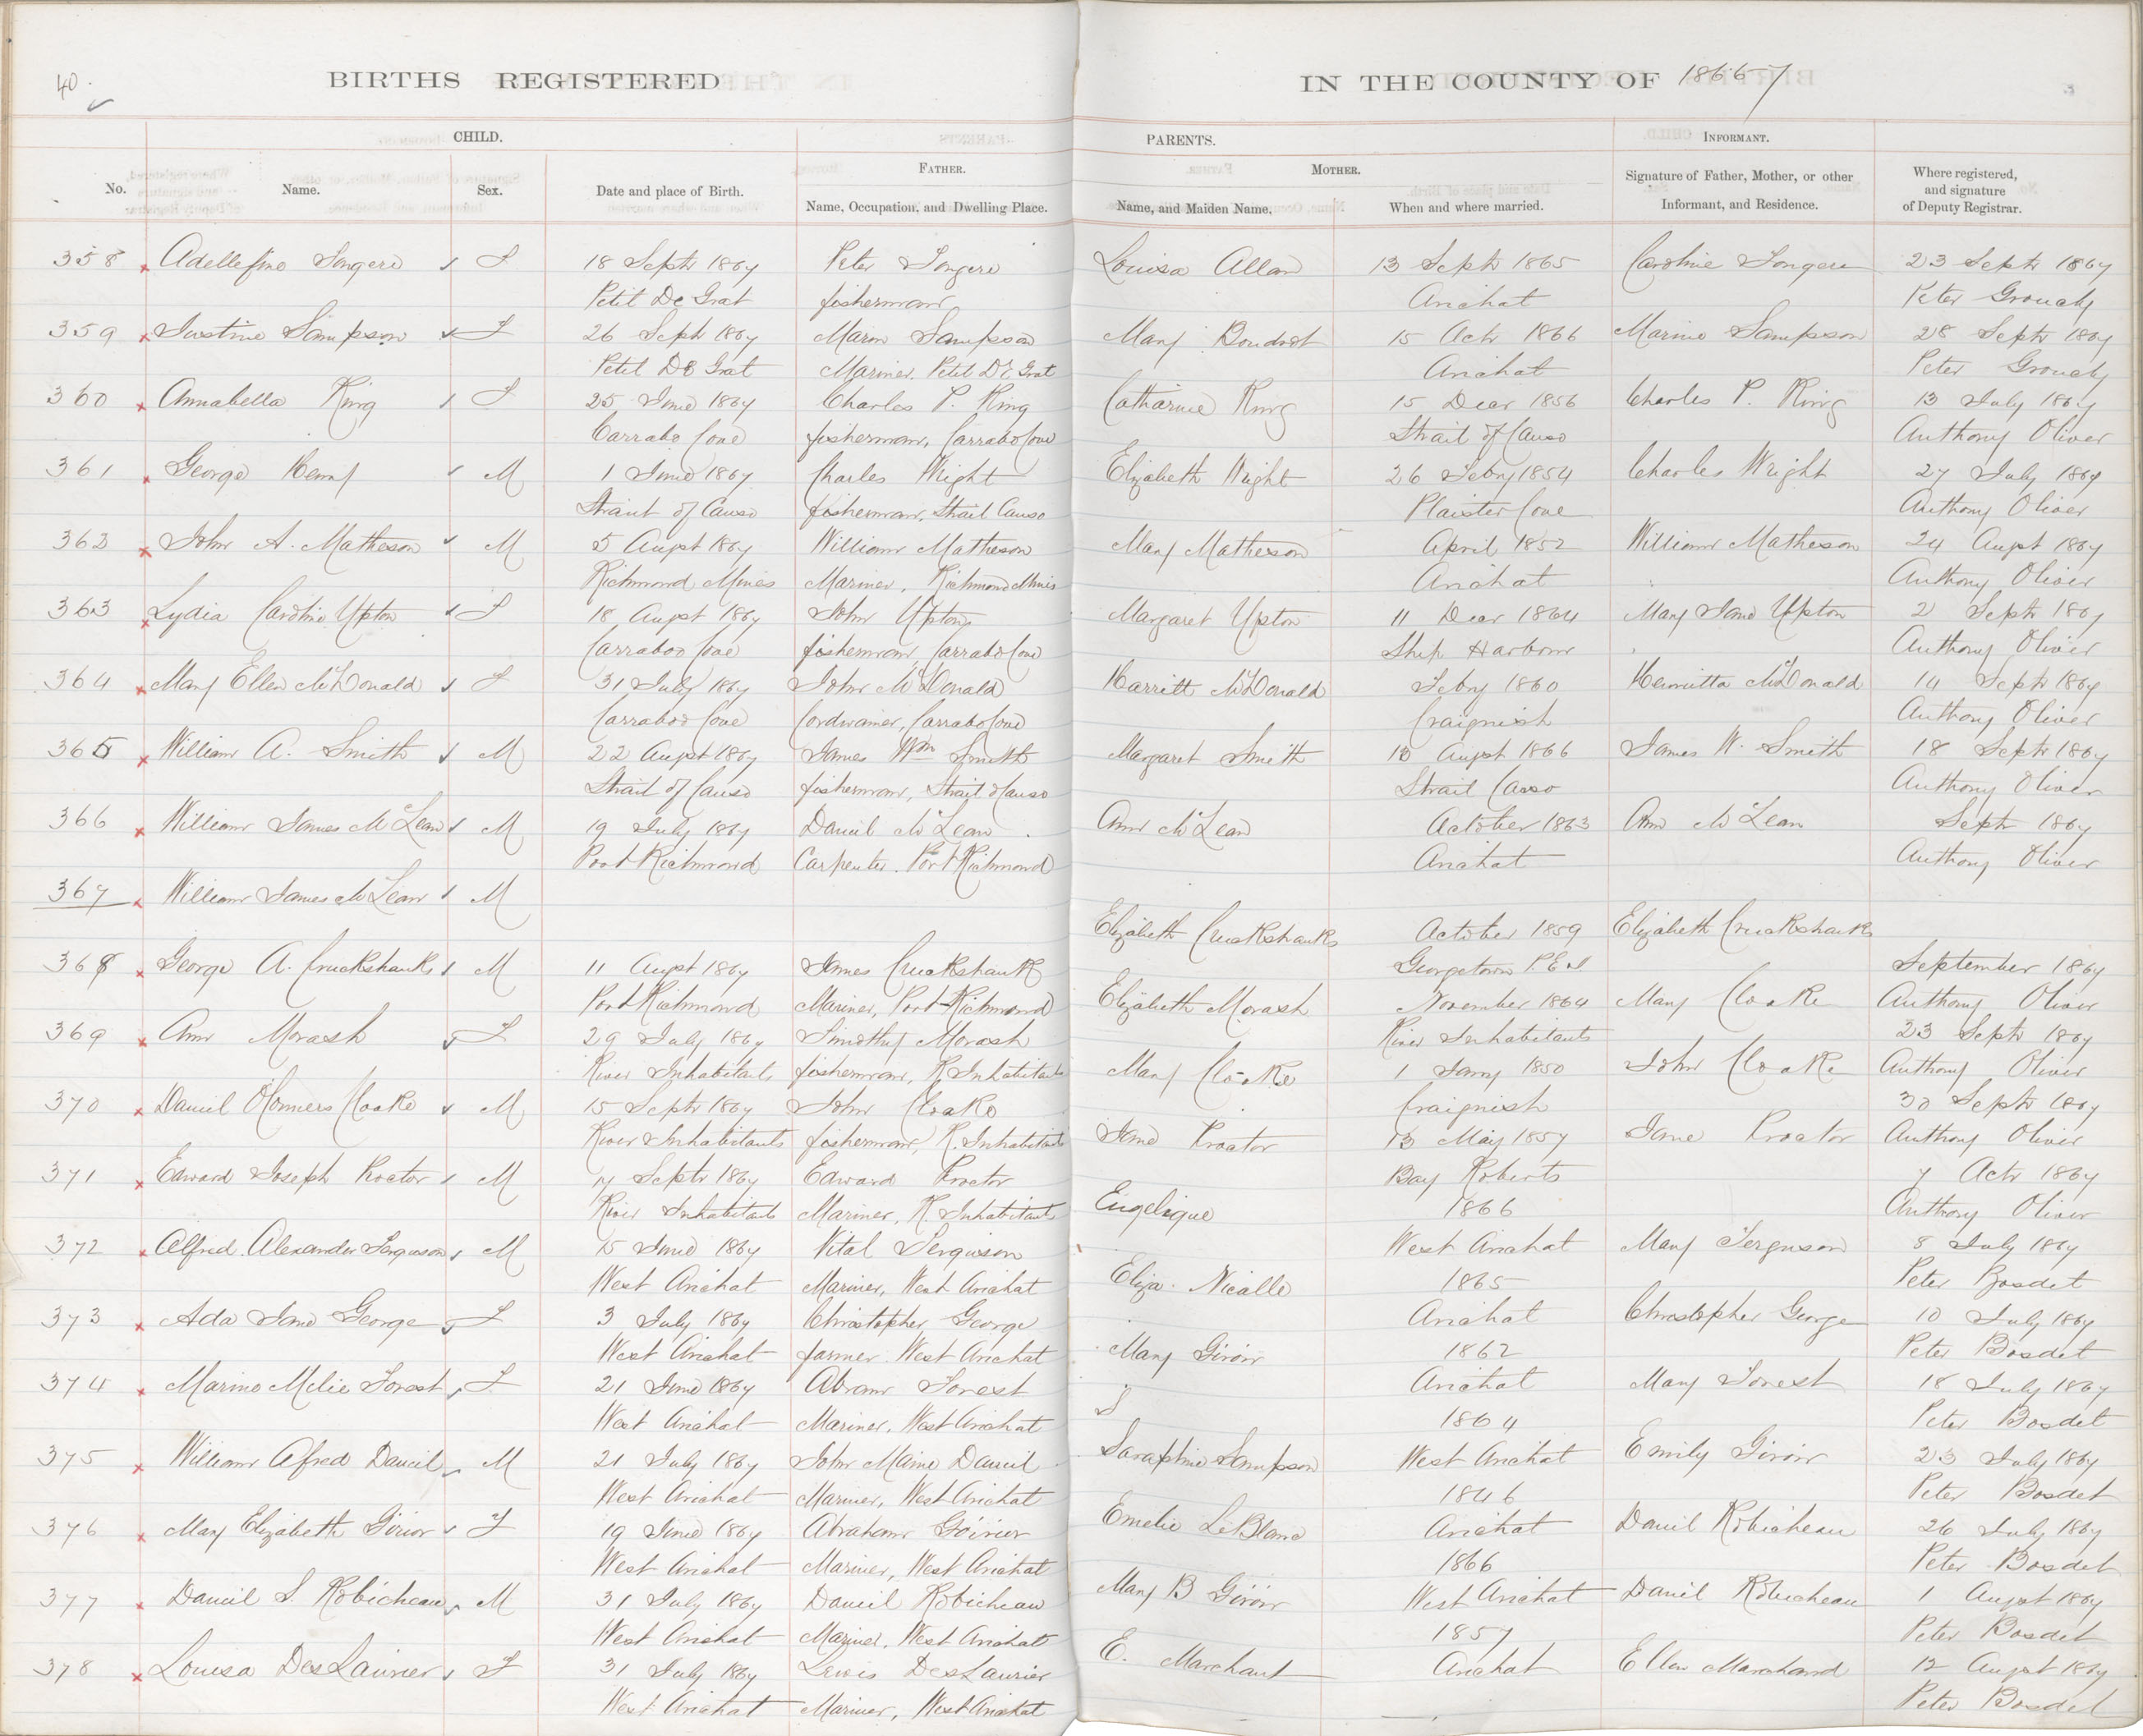 40.
BIRTHS REGISTERED IN THE COUNTY OF 1866 7
CHILD. PARENTS. INFORMANT.
FATHER. MOTHER.
No. Name. Sex. Date and place of Birth. Name, Occupation, and Dwelling Place. Name, and Maiden Name. When and where married. Signature of Father, Mother, or other Informant, and Residence. Where registered, and signature of Deputy Registrar.
358 Adellefine F 18 Septr 1867 Peter Louisa Allan 13 Septr 1865 Caroline 23 Septr 1867
Petit De Grat fisherman Arichat Peter Grouchy
359 Justine Sampson F 26 Septr 1867 Maron Sampson Mary Boudrot 15 Octr 1866 Marine Sampson 28 Septr 1867
Petit De Grat Mariner. Petit De Grat Arichat Peter Grouchy
360 Annabella King F 25 June 1867 Charles P. King Catharine King 15 Decr 1856 Charles P. King 13 July 1867
Carrabo Cove fisherman, Carrabo Cove Strait of Canso Anthony Oliver
361 George Kemp M 1 June 1867 Charles Wright Elizabeth Wright 26 Febry 1854 Charles Wright 27 July 1867
Strait of Canso fisherman, Strait Canso Plaister Cove Anthony Oliver
362 John A. Matheson M 5 Augst 1867 William Matheson Mary Matheson April 1852 William Matheson 24 Augst 1867
Richmond Mines Mariner, Richmond Mines Arichat Anthony Oliver
363 Lydia Caroline Upton F 18 Augst 1867 John Upton Margaret Upton 11 Decr 1864 Mary Jane Upton 2 Septr 1867
Carraboo Cove fisherman, Carrabo Cove Ship Harbour Anthony Oliver
364 Mary Ellen McDonald F 31 July 1867 John McDonald Harriett McDonald Febry 1860 Henrietta McDonald 14 Septr 1867
Carraboo Cove Cordwainer, Carrabo Cove Craignish Anthony Oliver
365 William A. Smith M 22 Augst 1867 James Wm Smith Margaret Smith Augst 1866 James W. Smith 18 Septr 1867
Strait of Canso fisherman, Strait of Canso Strait Canso Anthony Oliver
366 William James McLean M 19 July 1867 Daniel McLean Ann McLean October 1863 Ann McLean Septr 1867
Port Richmond Carpenter. Port Richmond Arichat Anthony Oliver
367 William James McLean M
Elizabeth Cruckshanks October 1859 Elizabeth Cruckshanks
368 George A. Cruckshanks M 11 Augst 1867 James Cruckshank Georgetown P.E.I September 1867
Port Richmond Mariner, Port Richmond Elizabeth Morash November 1864 Mary Cloake Anthony Oliver
369 Ann Morash F 29 July 1867 Timothy Morash River Inhabitants 23 Septr 1867
River Inhabitants fisherman, R. Inhabitants Mary Cloake 1 Jany 1850 John Cloake Anthony Oliver
370 Daniel Cloake M 15 Septr 1867 John Cloake Craignish 30 Septr 1867
River Inhabitants fisherman, R. Inhabitants Jane Proctor 13 May 1857 Jane Proctor Anthony Oliver
371 Edward Joseph Proctor M 17 Septr 1867 Edward Proctor Bay Roberts 7 Octr 1867
River Inhabitants Mariner, R. Inhabitants Engelique 1866 Anthony Oliver
372 Alfred Alexander Ferguson M 15 June 1867 Vital Ferguson West Arichat Mary Ferguson 8 July 1867
West Arichat Mariner, West Arichat Eliza Nicalle 1865 Peter Bosdet
373 Ada Jane George F 3 July 1867 Christopher George Arichat Christopher George 10 July 1867
West Arichat farmer West Arichat Mary Giroir 1862 Peter Bosdet
374 Marine Melie Forest F 21 June 1867 Abram Forest Arichat Mary Forest 18 July 1867
West Arichat Mariner, West Arichat S 1864 Peter Bosdet
375 William Alfred Daniel M 21 July 1867 John Maine Daniel Saraphine Sampson West Arichat Emily Giroir 23 July 1867
West Arichat Mariner, West Arichat 1846 Peter Bosdet
376 Mary Elizabeth Girior F 19 June 1867 Abraham Emelie LeBlanc Arichat Daniel Robicheau 26 July 1867
West Arichat Mariner, West Arichat 1866 Peter Bosdet
377 Daniel S. Robicheau M 31 July 1867 Daniel Robicheau Mary B Giroir West Arichat Daniel Robicheau 1 August 1867
West Arichat Mariner, West Arichat 1857 Peter Bosdet
378 Louisa DesLaurier F 31 July 1867 Lewis DesLaurier E. Marchant Arichat Ellen Marchand 12 August 1867
West Arichat Mariner, West Arichat Peter Bosdet